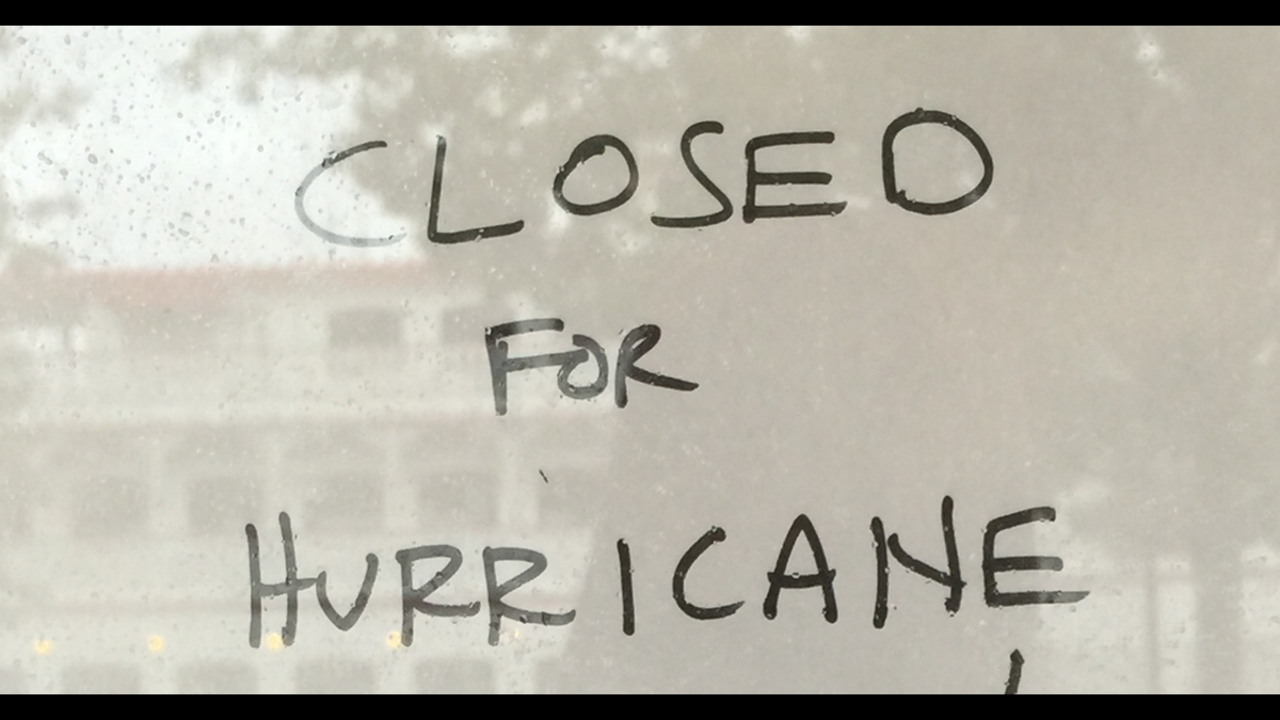 CLOSED
FOR
HURRICANE